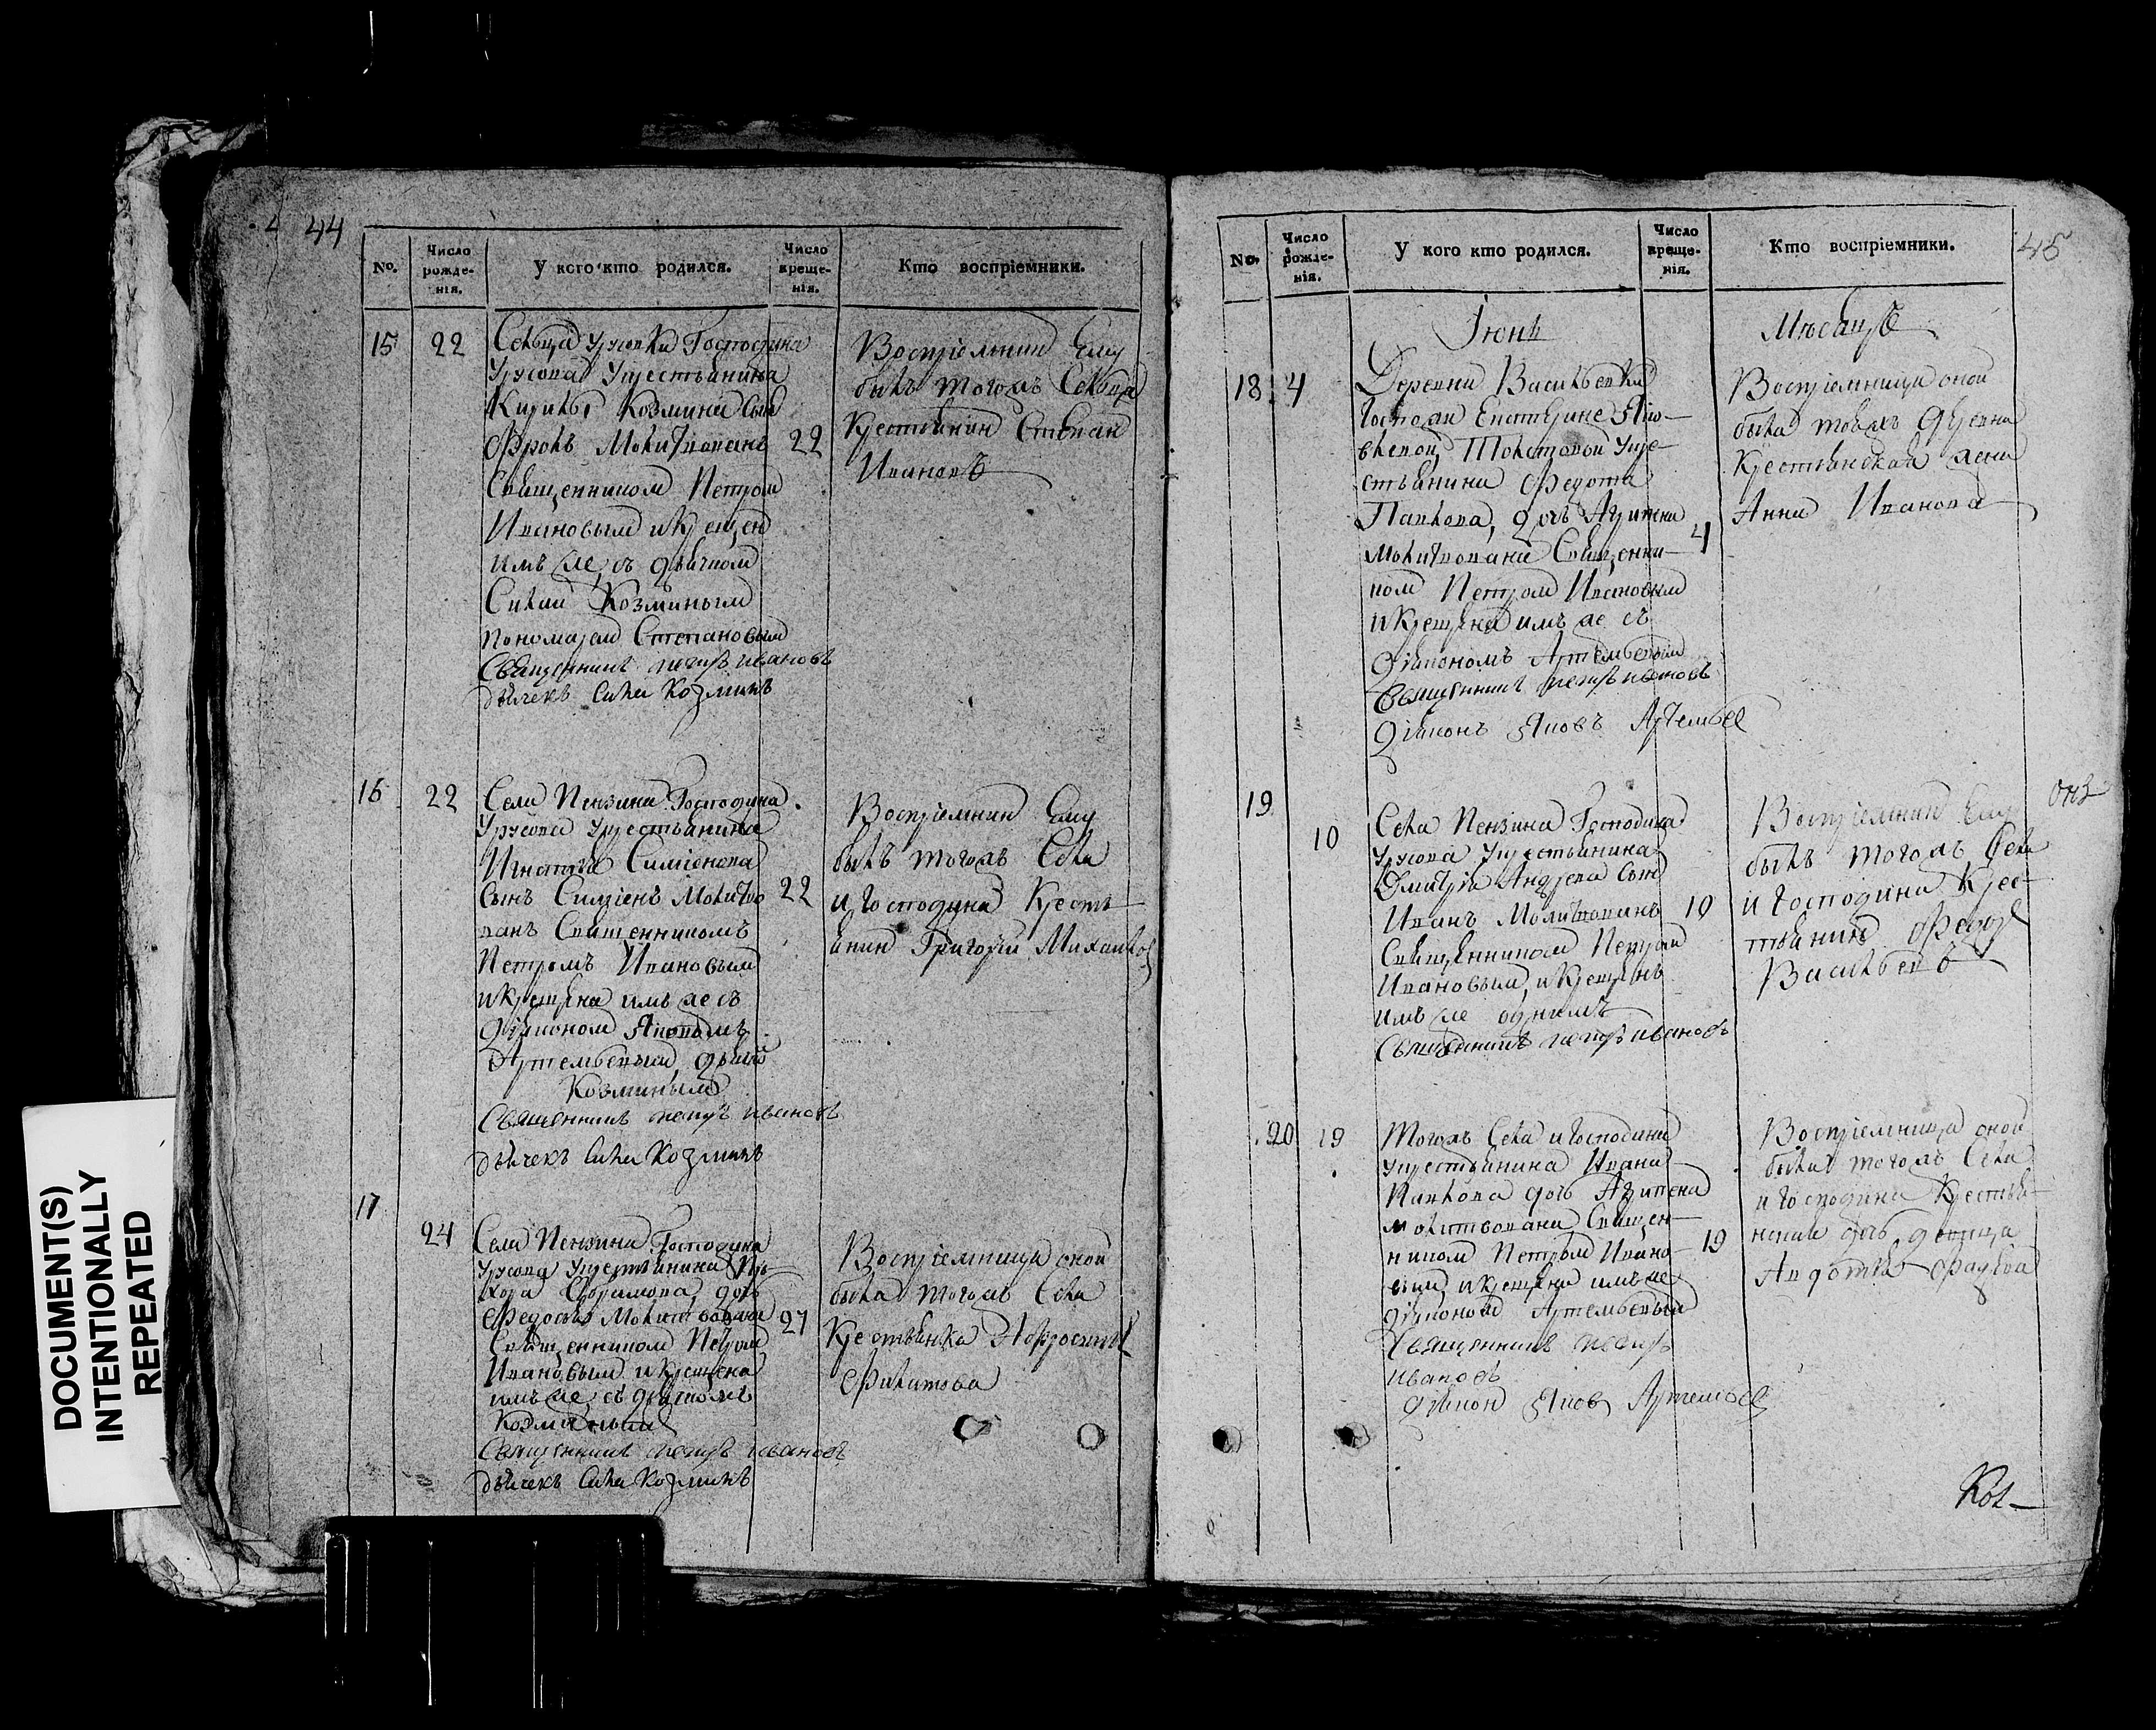 44
No.
Число рожде-нія.
У кого кто родился.
Число креще-нія.
Кто воспріемники.
15
22
Сельца Урусовки Господина
Урусова у крестьянина
Козмина сын
Фролъ Молитвованъ
22
Священником Петром
Ивановым и крещен
имъ же, съ дьячком
Силою Козминым
пономарем Степановым
Священникъ петръ ивановъ
дьячекъ Сила Козминъ
Воспріемник Ему
былъ тогожъ Сельца
Крестьянин Степан
Ивановъ
16
22
Села Пензина Господина
Урусова у крестьянина
Игнатья Симіонова
сынъ Симіонъ Молитво
22
ванъ Священникомъ
Петромъ Ивановым
и крещена имъ же съ
діякономъ Яковомъ
Артемьевым, дьяч
Козминым
Священникъ петръ ивановъ
дьячекъ Сила Козминъ
Воспріемник Ему
былъ тогожъ Села
и Господина Кресть-
янин Григорій Михайлов
17
24
Села Пензина Господина
Урусова у крестьянина
дочь
Федосья Молитвована
27
Священником Петром
Ивановым и крещена
имъ же, съ дьячкомъ
Козминым
Священникъ петръ ивановъ
дьячекъ Сила Козминъ
Воспріемница оной
была тогожъ Села
Крестьянка
Филипова
45
No.
Число рожде-нія.
У кого кто родился.
Число креще-нія.
Кто воспріемники.
Іюнь
Мѣсяцъ
18
4
Деревни Васильевки
Госпожи
Толстовой у кре-
стьянина Федота
Павлова, дочь
4
молитвована Священни-
ком Петром Ивановым
и крещена имъ же съ
Діякономъ Артемьевым
Священникъ петръ ивановъ
Діяконъ Яковъ Артемьев
Воспріемница оной
была тояжъ деревни
Крестьянская жена
Анна Иванова
19
10
Села Пензина Господина
Урусова у крестьянина
Дмитрія Андреева сын
Иванъ Молитвованъ
10
Священником Петром
Ивановым, и крещенъ
имъ же однимъ
Священникъ петръ ивановъ
Воспріемник Ему
былъ тогожъ Села
и Господина Крес-
тьянинъ Федор
Васильевъ
20
19
Тогожъ Села и Господина
у крестьянина Ивана
Павлова дочь Агрипена
молитвована Священ-
ником Петром Ивано-
19
вым и крещена имъ же
діяконом Артемьевым
Священникъ петръ
ивановъ
діякон Яков Артемьев
Воспріемница оной
была тогожъ Села
и Господина Крестья-
нская дочь девица
Авдотья
DOCUMENT(S)
INTENTIONALLY
REPEATED